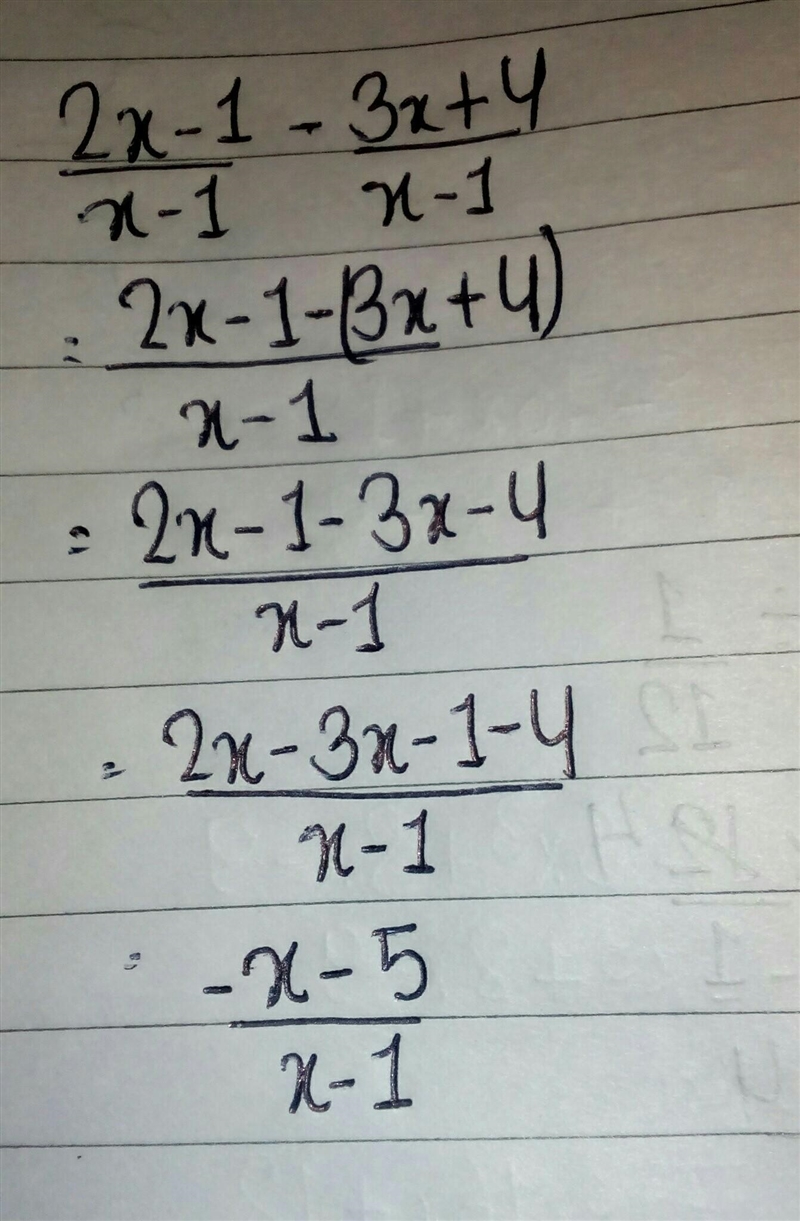 2x-1/x-1 - 3x+4/x-1
= 2x-1-(3x+4)/x-1
= 2x-1-3x-4/x-1
= 2x-3x-1-4/x-1
= -x-5/x-1